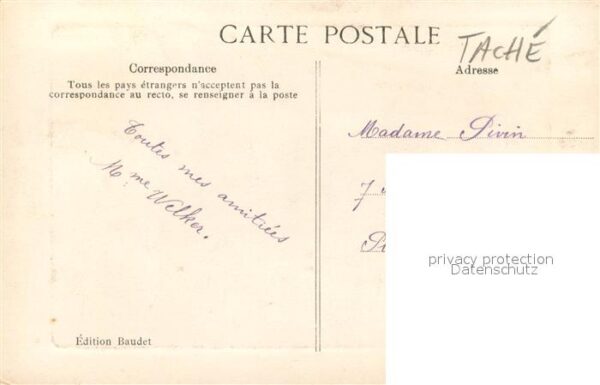 CARTE POSTALE
TACHÉ
Correspondance
Tous les pays étrangers n'acceptent pas la
correspondance au recto, se renseigner à la poste
Adresse
Toutes mes amitiées
Mme Welker.
Madame Pivin
7
privacy protection
Datenschutz
Édition Baudet